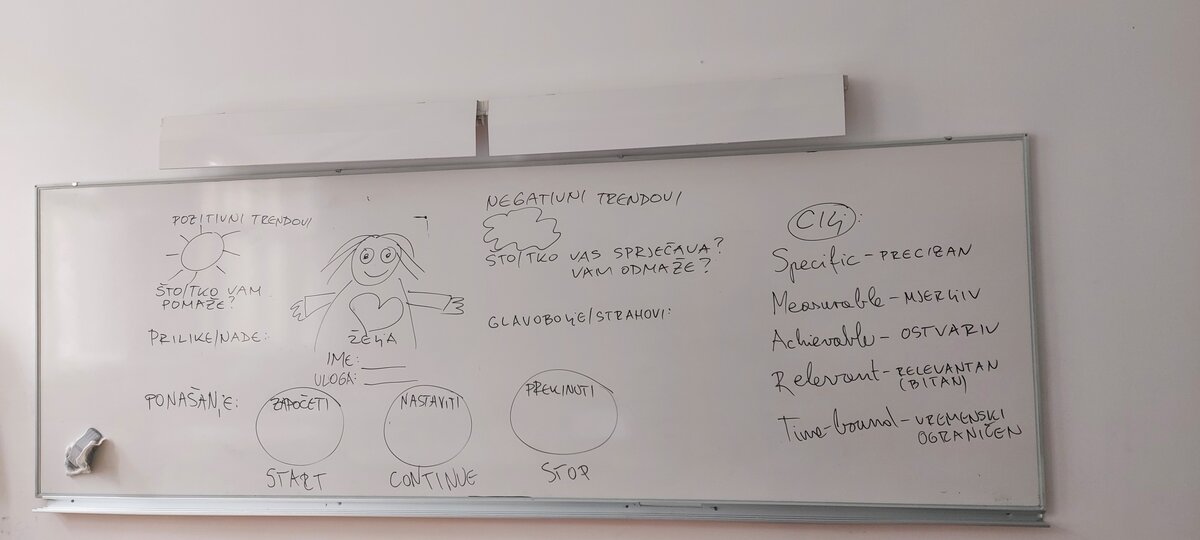 POZITIVNI TRENDOVI
ŠTO/TKO VAM
POMAŽE?
PRILIKE/NADE:
ŽELJA
IME:
ULOGA:
NEGATIVNI TRENDOVI
ŠTO/TKO VAS SPRJEČAVA?
VAM ODMAŽE?
GLAVOBOLJE/STRAHOVI:
PONAŠANJE:
ZAPOČETI
START
NASTAVITI
CONTINUE
PREKINUTI
STOP
CILJ:
Specific - PRECIZAN
Measurable - MJERLJIV
Achievable - OSTVARIV
Relevant - RELEVANTAN
(BITAN)
Time-bound - VREMENSKI
OGRANIČEN